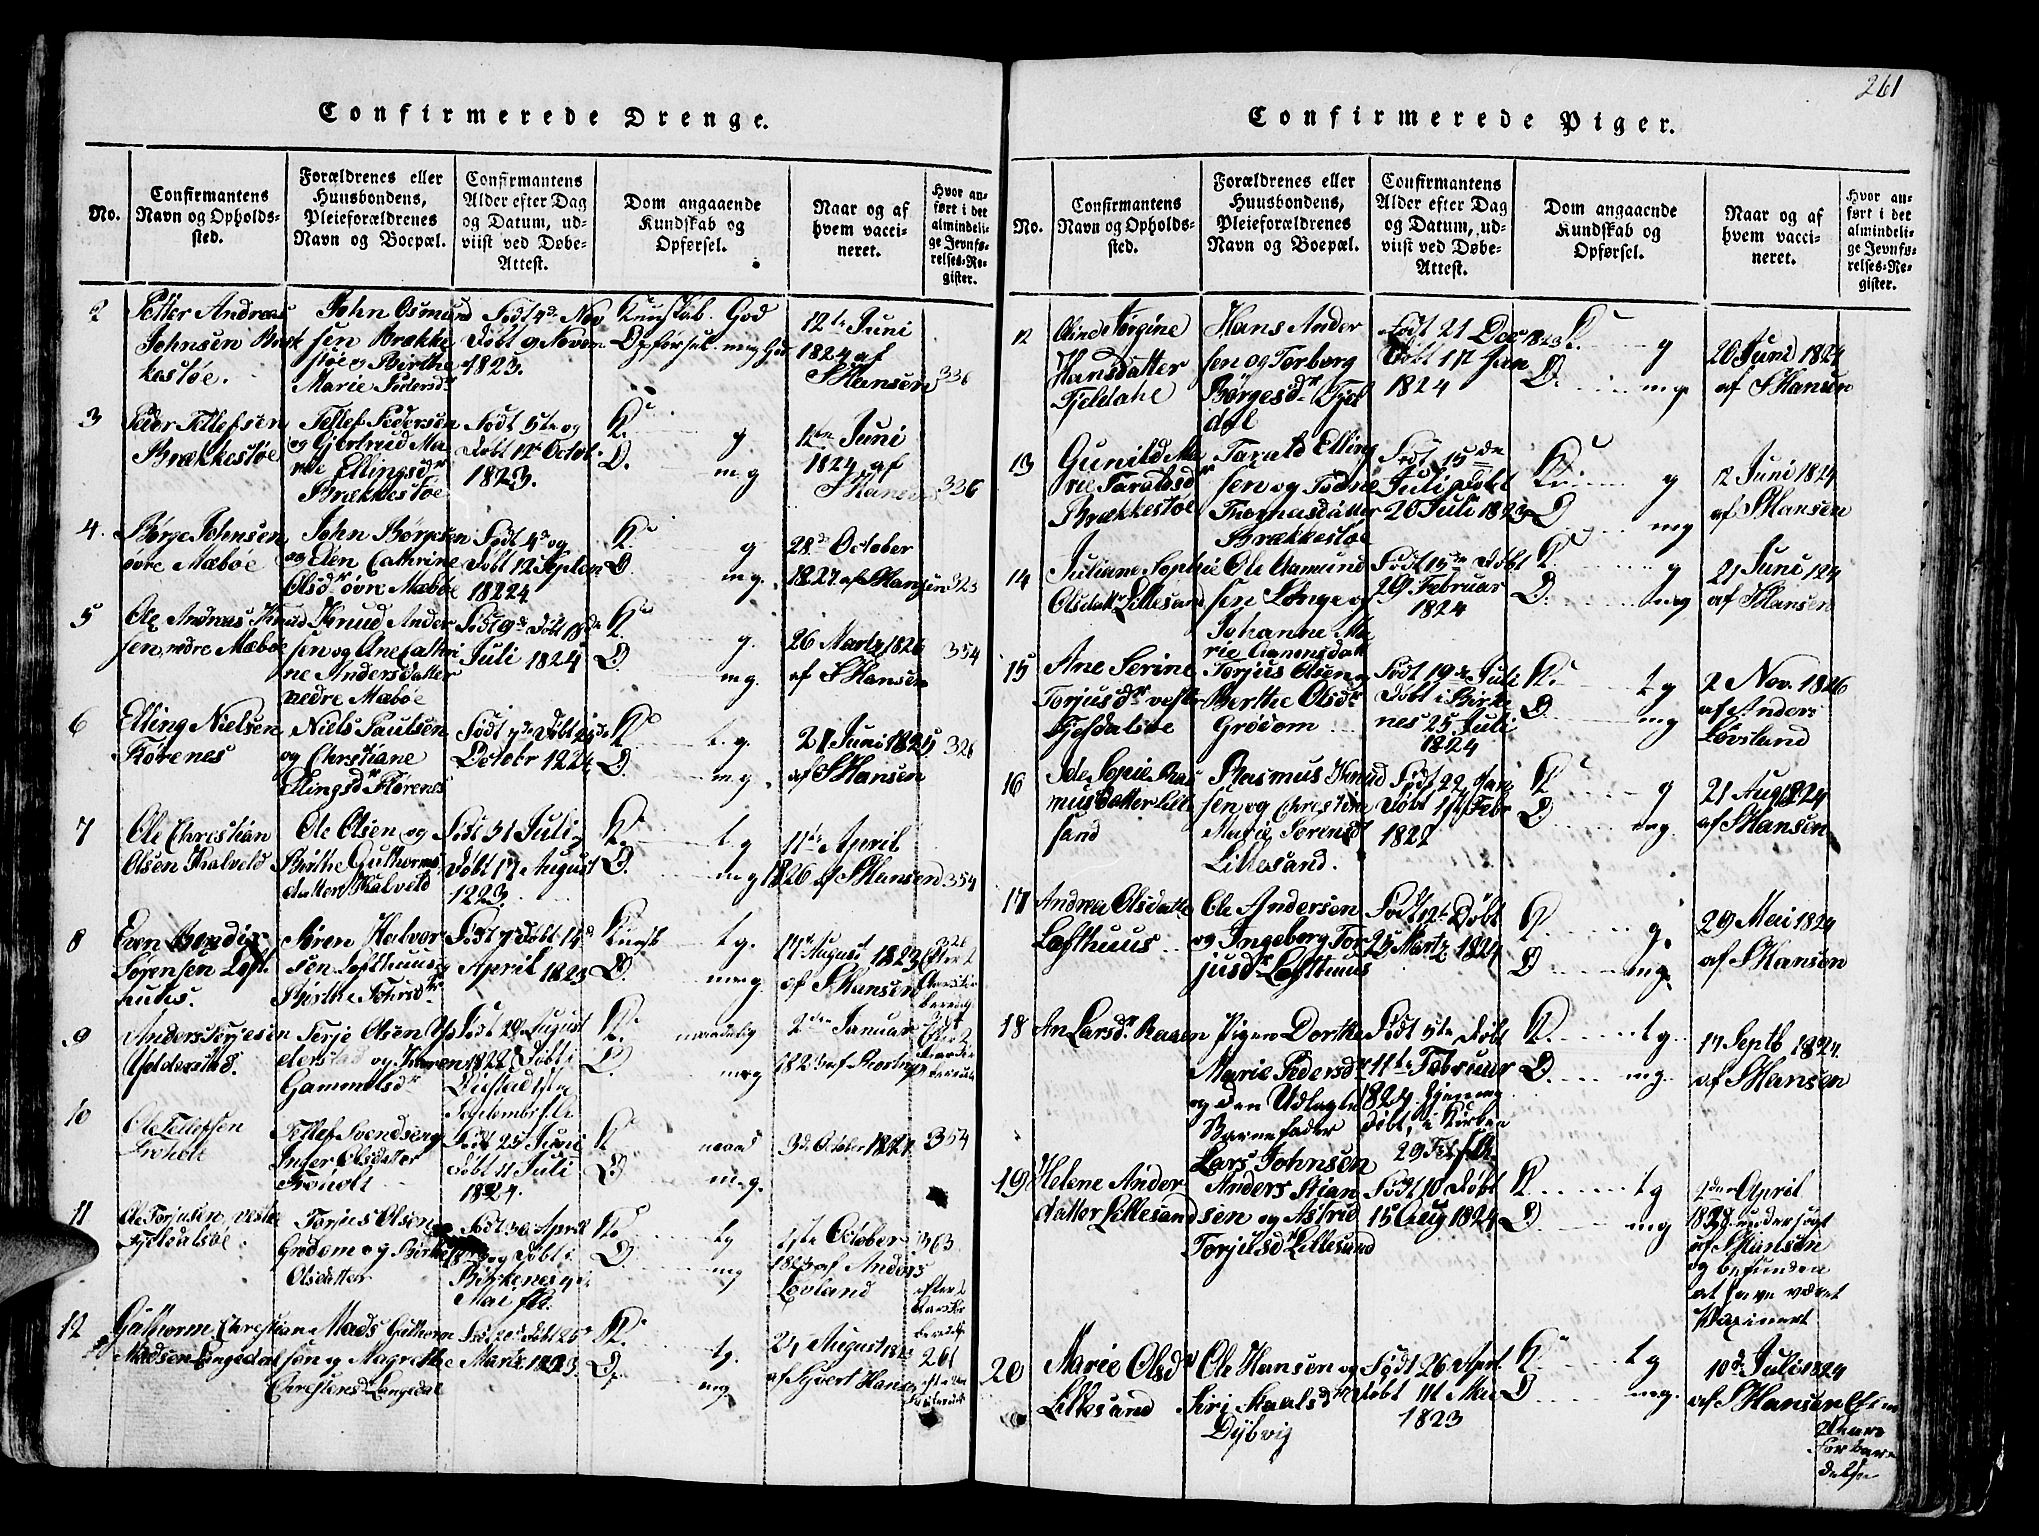 261
Confirmerede Drenge.
No.
Confirmantens
Navn og Opholds-
sted.
Forældrenes eller
Huusbondens,
Pleieforældrenes
Navn og Boepæl.
Confirmantens
Alder efter Dag
og Datum, ud-
viist ved Døbe-
Attest.
Dom angaaende
Kundskab og
Opførsel.
Naar og af
hvem vacci-
neret.
Hvor an-
ført i det
almindeli-
ge Jevnfø-
relses-Re-
gister.
2
Petter Andreas
Johnsen Bræk
kestøe.
John Osmund
sen Brække
støe og Birthe
Marie Pedersdr
Født 4de Nov
Døbt 9 Novem
1823.
Kundskab. God
Opførsel. meg God
12te Juni
1824 af
S Hansen
336
3
Peder Tellefsen
Brækkestøe
Tellef Pedersen
og Gjertrud Ma
rie Ellingsdr
Brækkestøe
Født 5te og
Døbt 12te Octobr
1823.
K. g
O. mg
12te Juni
1824 af
S Hansen
336
4.
Børge Johnsen
øvre Mæbøe
John Børgesen
og Elen Cathrine
Olsdr øvre Mæbøe
Født 4de og
Døbt 12 Septem
1822
K. g
O. mg.
28de October
1827 af S Hansen
323
5
Ole Andreas Knud
sen nedre Mæbøe
Knud Ander
sen og Ane Cathri
ne Andersdatter
nedre Mæbøe
Født 9de Døbt 18de
Juli 1824
K. g.
O. mg.
26 Martz 1826
af S Hansen
354
6
Elling Nielsen
Kørenes
Niels Paulsen
og Christiane
Ellingsdr
Født 7de Døbt
Octobr 1824
K. t.g.
O. mg.
21 Juni 1825
af S Hansen
326
7
Ole Christian
Olsen Kalveld
Ole Olsen og
Birthe Guthorms
datter Kalveld
Født 31 Juli
Døbt 17 August
1823
K. t g
O. mg
11te April
1826 af S Hansen
354
8
Even Bendix
Sørensen Loft
huus.
Søren Halvor
sen Lofthuus og
Birthe
Født 7 Døbt 14de
April 1823
Kundsk t g.
O. meg.
17de August 1823
af S Hansen
326
Efter 2
9
Anders Terjesen
Ufelderstad.
Terje Olsen
og Karen
Gammelsdr
Født 29 August
1822 Døbt i
K. maadelig
O. meg
2den Januar
1823 af
10
Ole Tellefsen
Tellef Svendsen og
Inger Olsdatter
Født 25 Juni
Døbt 11 Juli
1824.
K. maad
O. m.g.
3de October 1827
354
11
Ole Torjusen vestre
Fjeldalsøe
Torjus Olsen
Grødom og Birthe
Olsdatter
Født 30 April
og Døbt i
Birkenes 4de
Mai
K. tg
O. mg
1ste October
1823 af Anders
Lovland
363
efter 2
12
Guthorm Christian
Madsen Langedal
Mads Guthorm
sen og Magrethe
Christensd Langedal
Døbt 25de
Marts 1823.
K. tg.
O. mg.
24 August 1823
af Sywert Hansen
261
Confirmerede Piger.
No.
Confirmantens
Navn og Opholds-
sted.
Forældrenes eller
Huusbondens,
Pleieforældrenes
Navn og Boepæl.
Confirmantens
Alder efter Dag
og Datum, ud-
viist ved Døbe-
Attest.
Dom angaaende
Kundskab og
Opførsel.
Naar og af
hvem vacci-
neret.
Hvor an-
ført i det
almindeli-
ge Jevnfø-
relses-Re-
gister.
12
Oline Jørgine
Hansdatter
Fjeldahl
Hans Ander
sen og Torborg
Børgesdr Fjel
dal
Født 21 Decr 1823
Døbt 1st Jan
1824
K. g
O. mg.
20 Juni 1824
af S Hansen
13
Gunild Ma
rie Taraldsdr
Brækkestøe
Tarald Elling
sen og Todne
Thomasdatter
Brækkestøe
Født 15de
Juli Døbt
20 Juli 1823
K. g
O. mg
12 Juni 1824
af S Hansen
14
Juliane Sophie
Olsdatter Lillesand
Ole Aamund
sen Longe og
Johanne Ma
rie
Født 15de Døbt
29 Februar
1824
K. g
O. mg
21 Juni 124
af S Hansen
15
Ane Serine
Torjusdr vestre
Torjus Olsen og
Berthe Olsdr
Grødom
Født 19de Juli
Døbt i Birke
nes 25 Juli
1824
K. t g
O. mg
2 Nov. 1826
af Anders
Lovsland
16
Sopie Ras
musdatter Lille
sand
Rasmus Knud
sen og Christine
Marie Sørensdr
Lillesand.
Født 22 Jan
Døbt 1st Febr
182
K. g
O. mg.
21 Aug 1824
af S Hansen
17
Andrea Olsdatter
Lofthuus
Ole Andersen
og Ingeborg Tor
jusdr Lofthuus
Født 12te Døbt
25 Martz 1824
K. g.
O. mg.
29 Mei 1824
af S Hansen
18
An Larsdr
Pigen Dorthe
Marie Pedersdr
og den Udlagte
Barnefader
Lars Johnsen
Født 5te Døbt
11te Februar
1824 Hjemme
døbt, i Kirken
29 Feb
K. t g
O. mg.
17 Septb 1824.
af S Hansen
19
Helene Ander
datter Lillesand
Anders Stian
sen og Astrid
Torjusdr Lillesand
Født 10 Døbt
15 Aug 1824
K. t g
O. mg
2den April
undersøgt
af S Hansen
og befunden
at have været
Vaxineret
20
Marie Olsdr
Lillesand
Ole Hansen og
Siri
Dybvig
Født 26 Apr.
Døbt 11 Mai
1823
K. t g
O. mg.
10de Juli 1824
af S Hansen Efter
2 Aars
Forbere
delse